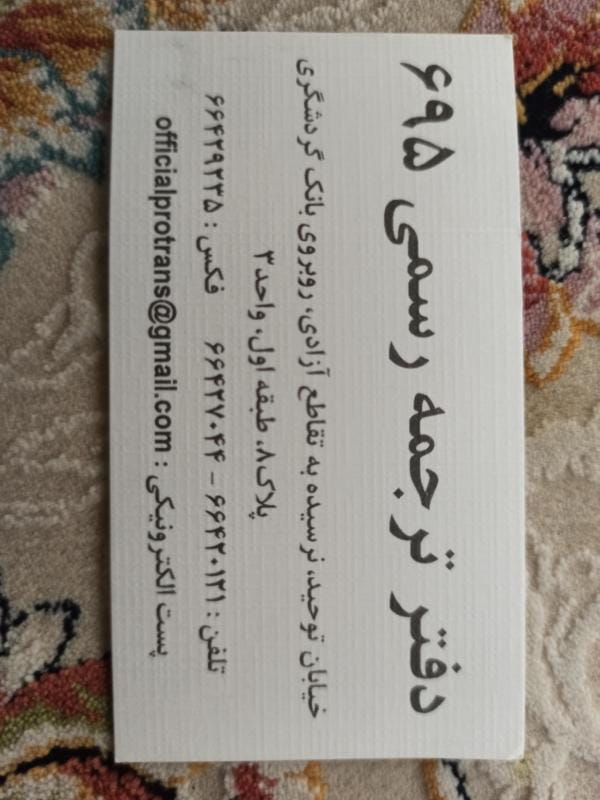 دفتر ترجمه رسمی ۶۹۵
خیابان توحید، نرسیده به تقاطع آزادی، روبروی بانک گردشگری
پلاک۸، طبقه اول، واحد۳
تلفن : ۶۶۴۲۰۱۲۱ – ۶۶۴۲۷۰۴۴ فکس : ۶۶۴۲۹۲۳۵
پست الکترونیکی : officialprotrans@gmail.com